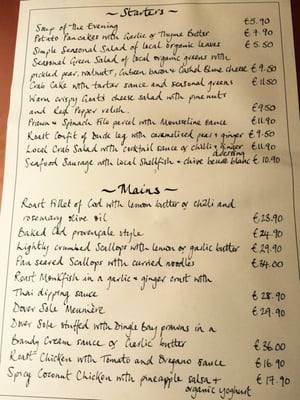 ~ Starters ~
Soup of the Evening €5.90
Potato Pancakes with Garlic & Thyme Butter € 7.90
Simple Seasonal Salad of local organic leaves € 5.50
Seasonal Green Salad of local organic greens with
pickled pear, walnuts, Gubeen bacon & Cashel Blue cheese € 9.50
Crab Cake with tartar sauce and seasonal greens € 11.50
Warm crispy Goats cheese salad with pinenuts
and Red Pepper relish €9.50
Prawn & Spinach Filo parcel with Mousseline sauce € 11.90
Roast Confit of Duck leg with caramelised pear & ginger € 9.50
Local Crab Salad with cocktail sauce or chilli & ginger €11.90
dressing
Seafood Sausage with local shellfish & chive beurre blanc € 10.90
~ Mains ~
Roast Fillet of Cod with lemon butter or chilli and
rosemary olive oil €23.90
Baked Cod provençale style € 24.90
Lightly crumbed Scallops with lemon or garlic butter € 29.90
Pan seared Scallops with curried noodles € 34.00
Roast Monkfish in a garlic & ginger crust with
Thai dipping sauce € 28.90
Dover Sole Meunière € 29.90
Dover Sole stuffed with Dingle Bay prawns in a
Brandy Cream sauce or Garlic butter € 36.00
Roast Chicken with Tomato and Oregano sauce € 16.90
Spicy Coconut Chicken with pineapple salsa + € 17.90
organic yoghurt